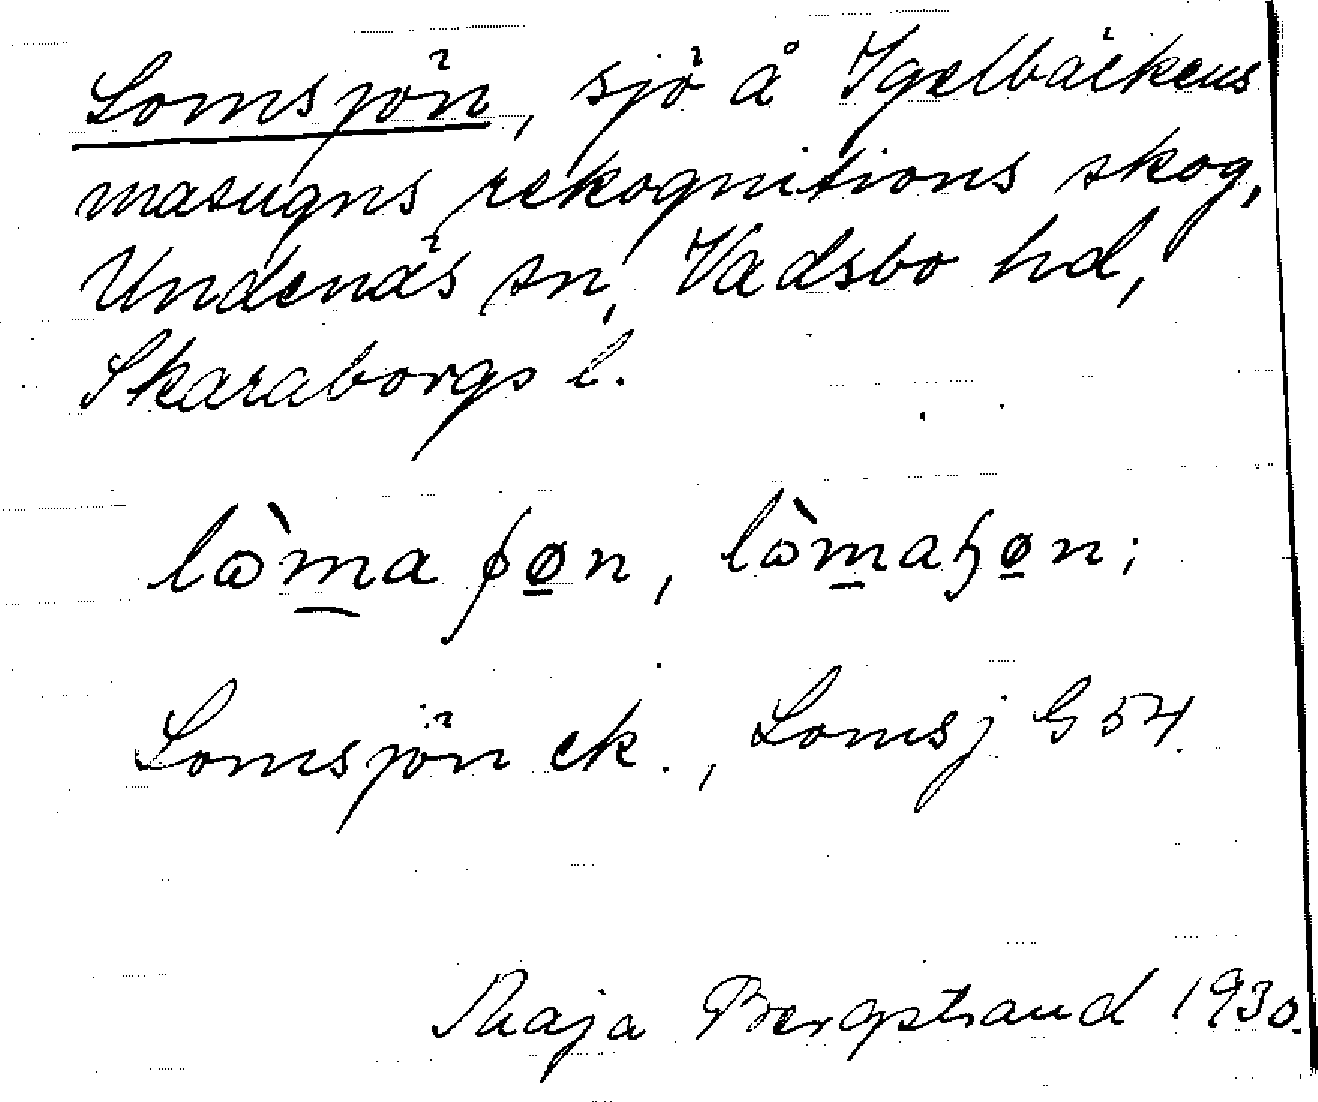 Lomsjön, sjö å Igelbäckens
masugns rekognitions skog,
Undenäs sn, Vadsbo hd,
Skaraborgs l.
Lomsjön ek., Lomsj G 54.
Maja Bergstrand 1930.